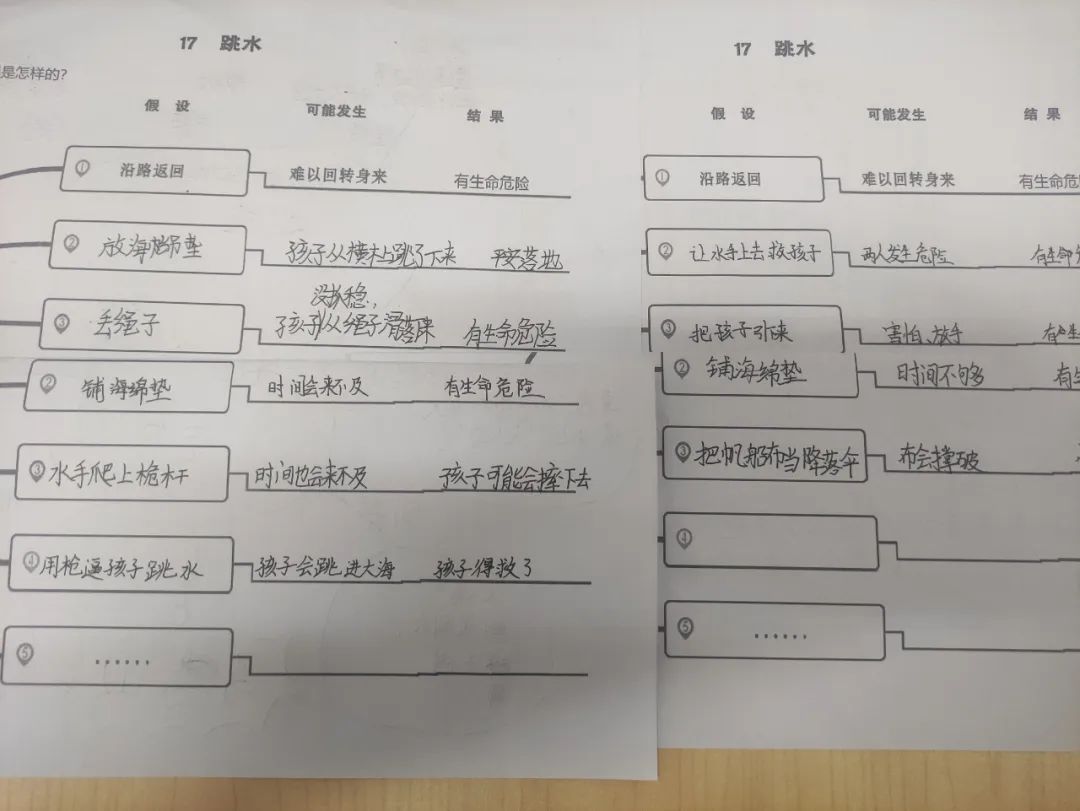 17 跳水
是怎样的？
假设 可能发生 结果
① 沿路返回 难以回转身来 有生命危险
② 放海绵垫 孩子从横木上跳了下来 平安落地
③ 丢绳子 没抓稳，孩子从绳子滑落下来 有生命危险
② 铺海绵垫 时间会来不及 有生命危险
③ 水手爬上桅杆 时间也会来不及 孩子可能会摔下去
④ 用枪逼孩子跳水 孩子会跳进大海 孩子得救了
⑤ ······
17 跳水
假设 可能发生 结果
① 沿路返回 难以回转身来 有生命危
② 让水手上去救孩子 两人发生危险 有生命
③ 把孩子引下来 害怕、放手 有生
② 铺海绵垫 时间不够 有生
③ 把帆船布当降落伞 布会撑破
④
⑤ ······